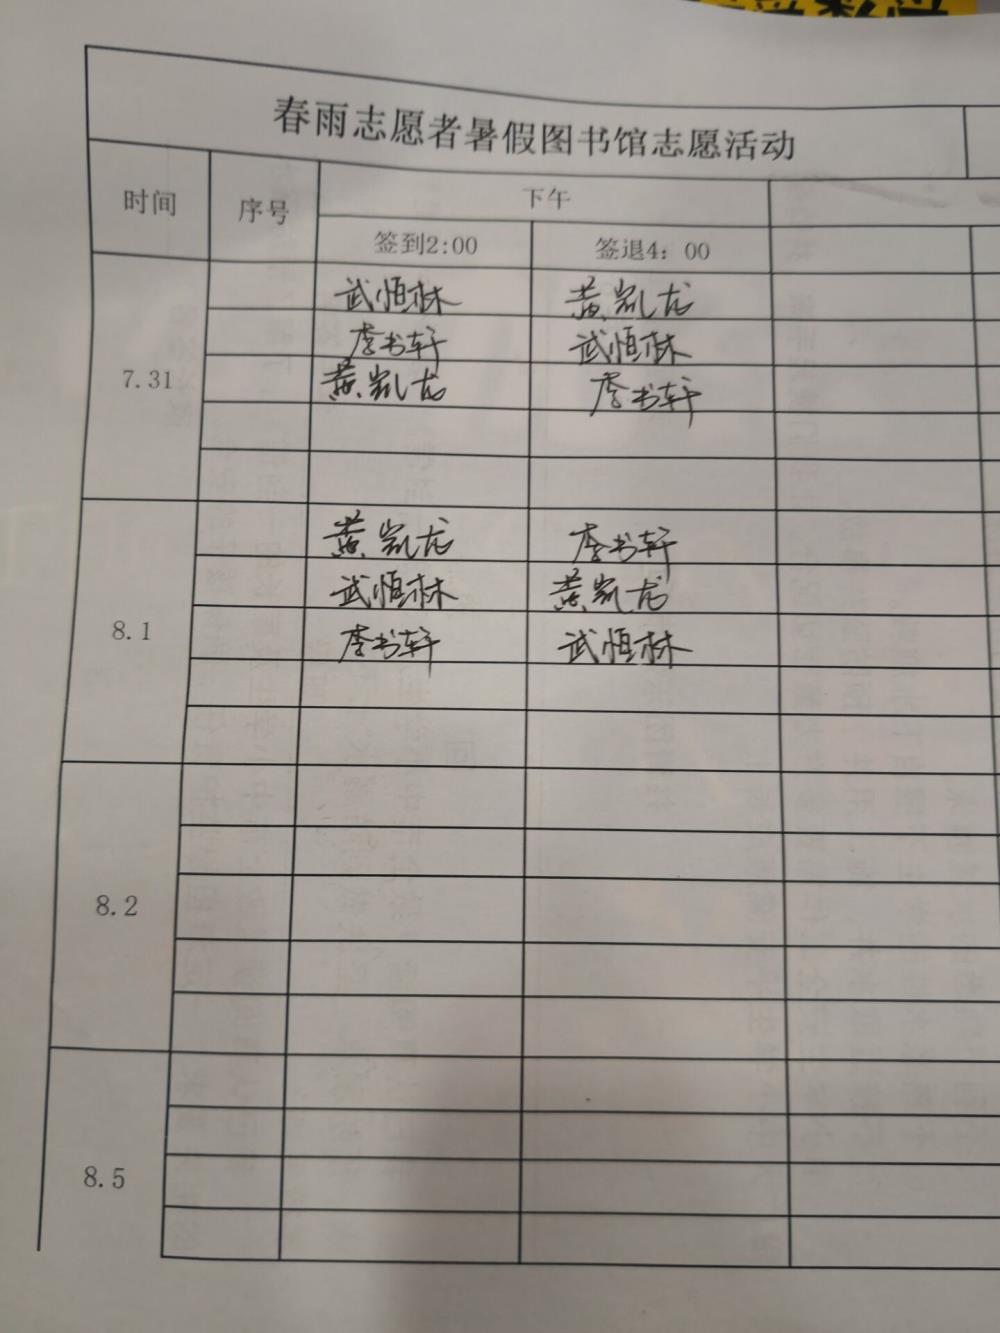 春雨志愿者暑假图书馆志愿活动
时间 序号 下午
签到2:00 签退4：00
武恒林 黄凯龙
李书轩 武恒林
7.31 黄凯龙 李书轩
黄凯龙 李书轩
武恒林 黄凯龙
8.1 李书轩 武恒林
8.2
8.5